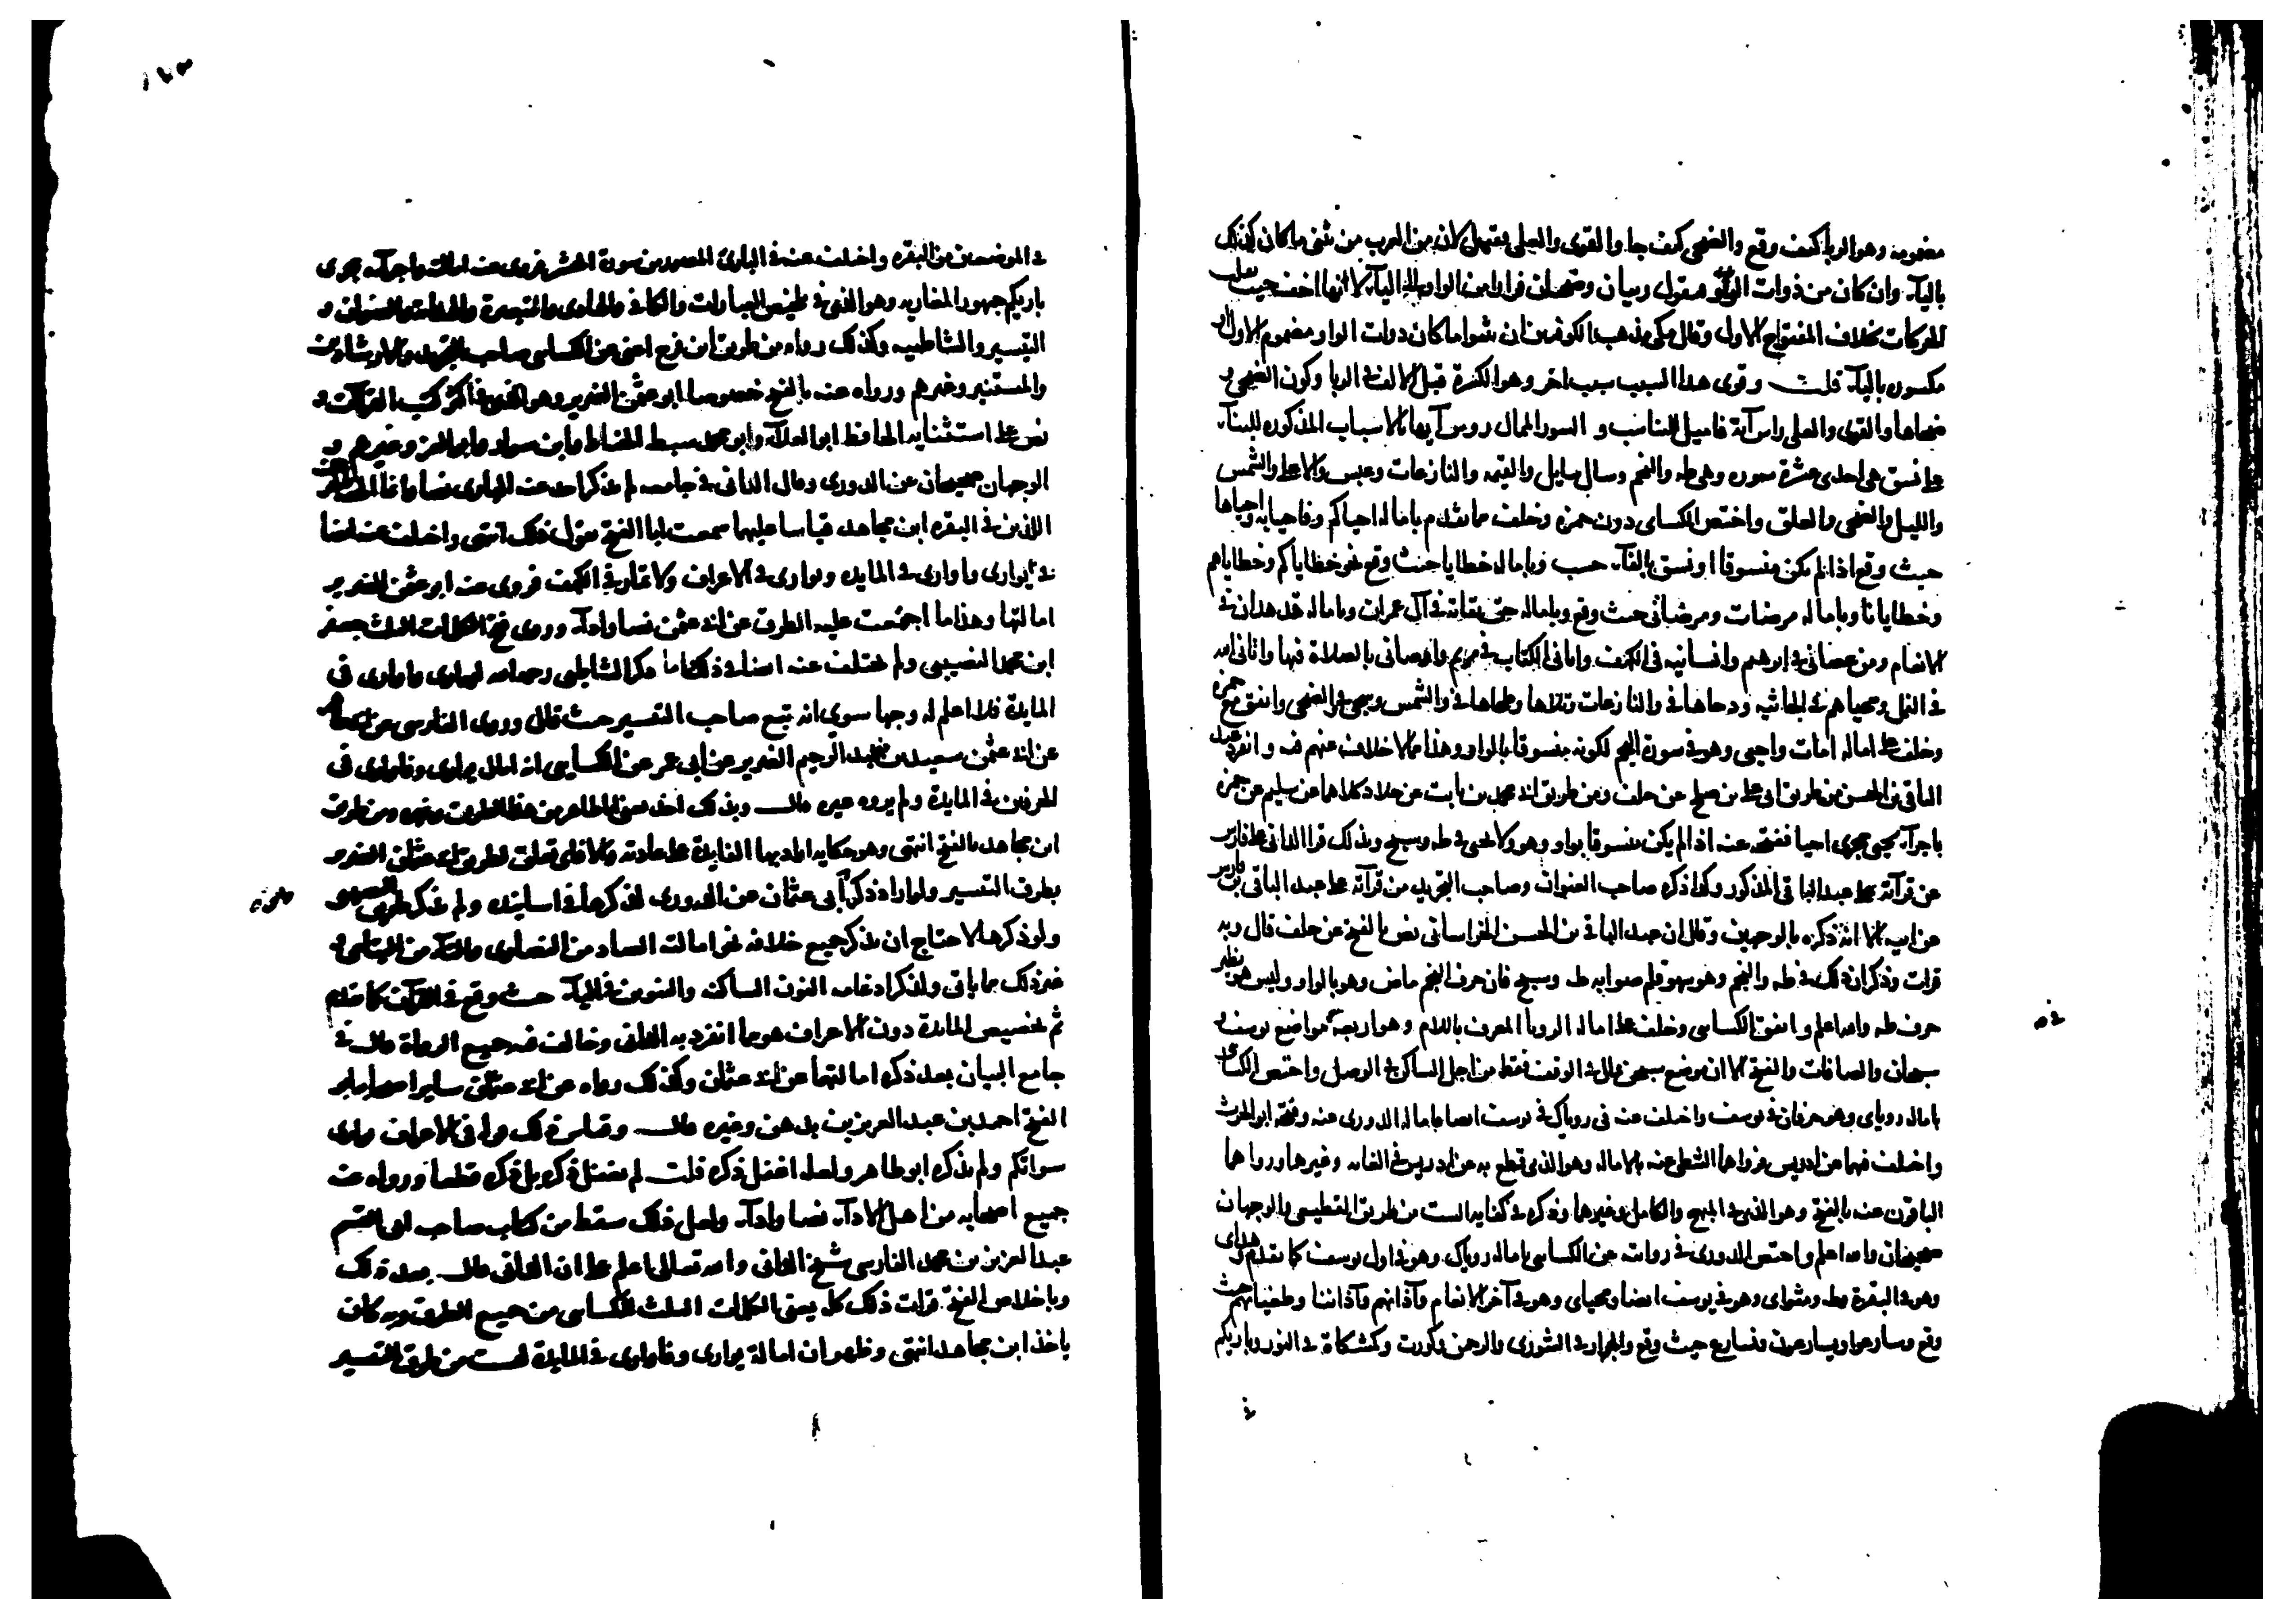 مضمومه وهو الربا كيف وقع والضحى كيف جا والقوى والعلى بقيل لان من العرب من يثنى ما كان كذلك
باليآ وان كان من ذوات الواو فيقول ربيان وضحيان فرارا من الواو الى اليآ لانها اخف حيث ثقلت
الحركات بخلاف المفتوح الاول وقال مكي مذهب الكوفيين ان يثنوا ما كان ذوات الواو مضموم الاول او
مكسوره باليآ قلت وقوى هذا السبب سبب اخر وهو الكسرة قبل الالف في الربا وكون الضحى و
ضحاها والقوى والعلى راس آية فاميل للتناسب و السور الممال روس آيها بالاسباب المذكوره للبنآ
على نسق هي احدى عشرة سوره وهي طه والنجم وسال سايل والقيمه والنازعات وعبس والاعلى والشمس
والليل والضحى والعلق واختص الكسائ دون حمزه وخلف مما تقدم باماله احياكم وفاحيا به واحياها
حيث وقع اذا لم يكن منسوقا او نسق بالفآ حسب وباماله خطايا حيث وقع نحو خطاياكم وخطاياهم
وخطايانا وباماله مرضات ومرضاتي حيث وقع وباماله حق تقاته في آل عمران وباماله قد هدان في
الانعام ومن عصاني في ابرهيم وانسانيه في الكهف واتاني الكتاب في مريم واوصاني بالصلاة فيها واتاني الله
في النمل ومحياهم في الجاثيه ودحاها في والنازعات وتلاها وطحاها في والشمس وسجى في والضحى واتفق مع حمزه
وخلف على اماله امات واحيى وهو في سورة النجم لكونه منسوقا بالواو وهذا مما لا خلاف عنهم فيه وانفرد عبد
الباقي بن الحسن من طريق ابي علي بن صلح عن خلف ومن طريق ابي محمد بن ثابت عن خلاد كلاهما عن سليم عن حمزه
باجرآ يحيى مجرى احيا ففتحه عنه اذا لم يكن منسوقا بواو وهو ولا يحيى في طه وسبح وبذلك قرا الداني على فارس
عن قرآته على عبد الباقي المذكور وكذا ذكره صاحب العنوان وصاحب التجريد من قرآته على عبد الباقي بن فارس
عن ابيه الا انه ذكره بالوجهين وقال ان عبد الباقي بن الحسن الخراساني نص بالفتح عن خلف قال وبه
قرات وذكر ان ذلك في طه والنجم وهو سهو قلم صوابه طه وسبح فان حرف النجم ماض وهو بالواو وليس هو نظير
حرف طه والله اعلم واتفق الكسائى وخلف على اماله الرويا المعرف باللام وهو اربعة مواضع يوسف و
سبحان والصافات والفتح الا ان موضع سبحن يمال في الوقف فقط من اجل الساكن في الوصل واختص الكسائ
باماله روياى وهو حرفان في يوسف واختلف عنه في روياك في يوسف ايضا فاماله الدورى عنه وفتحه ابو الحرث
واختلف فيهما عن ادريس فرواهما الشطي عنه بالاماله وهو الذي قطع به عن ادريس في الغايه وغيرها ورواهما
الباقون عنه بالفتح وهو الذي في المبهج والكامل وغيرهما وذكره في كفايه الست من طريق القطيعي والوجهان
صحيحان والله اعلم واختص الدورى في روايته عن الكسائى باماله روياك وهو في اول يوسف كما تقدم وهداى
وهو في البقرة وطه ومثواى وهو في يوسف ايضا ومحياى وهو في آخر الانعام وآذانهم وآذاننا وطغيانهم حيث
وقع وسارعوا ويسارعون ونسارع حيث وقع والجوار في الشورى والرحمن وكورت وكمشكاة في النور وباريكم
في
في ص
١٧٣
في الموضعين من البقره واختلف عنه في البارئ المصور من سورة الحشر فروى عنه امالته واجرآه مجرى
باريكم جمهور المغاربه وهو الذي في تلخيص العبارات والكافي والهادى والتبصرة والهدايه والعنوان و
التيسير والشاطبيه وكذلك رواه من طريق ابن فرح اعني عن الكسائى صاحب التجريد والارشادين
والمستنير وغيرهم ورواه عنه بالفتح خصوصا ابو عثمن الضرير وهو الذي في اكثر كتب القرآات و
نص على استثنايه الحافظ ابو العلآ وابو محمد سبط الخياط وابن سوار وابو العز وغيرهم و
الوجهان صحيحان عن الدورى وقال الداني في جامعه لم يذكر احد عنه البارى نصا وانما الحقه بالحرفين
اللذين في البقره ابن مجاهد قياسا عليهما سمعت ابا الفتح يقول ذلك انتهى واختلف عنه ايضا
في يوارى واوارى في المايده ويوارى في الاعراف ولا تمار في الكهف فروى عنه ابو عثمن الضرير
امالتها وهذا ما اجتمعت عليه الطرق عن ابي عثمن نصا وادآ وروى فتح الكلمات الثلث جعفر
ابن محمد النصيبي ولم يختلف عنه ايضا في ذلك واما ما ذكره الشاطبي رحمه الله ليوارى واوارى في
المايدة فلا اعلم له وجها سوى انه تبع صاحب التيسير حيث قال وروى الفارسى عن ابي طاهر
عن ابي عثمن سعيد بن عبد الرحيم الضرير عن ابي عمر عن الكسائى انه امال يوارى وفاوارى في
الحرفين في المايدة ولم يروه غيره قال وبذلك اخذ يعني ابا طاهر من هذا الطريق وغيره ومن طريق
ابن مجاهد بالفتح انتهى وهو حكايه اراد بها الفايدة على عادته والا فاى تعلق لطريق ابي عثمان الضرير
بطريق التيسير ولو اراد ذكر طريق ابي عثمان عن الدورى لذكرها في اسانيده ولم يذكر طريق النصيبي
ولو ذكرها لاحتاج ان يذكر جميع خلافه نحو امالته الصاد من النصارى والتآ من اليتامى و
غير ذلك مما ياتى ولذكر ادغامه النون الساكنه والتنوين في اليآ حيث وقع في القرآن كما تقدم
ثم تخصيص المايدة دون الاعراف هو مما انفرد به الداني وخالف فيه جميع الرواة قال في
جامع البيان بعد ذكره امالتهما عن ابي عثمان وكذلك رواه عن ابي عثمن ساير اصحابه ابو
الفتح احمد بن عبد العزيز بن بدهن وغيره قال وقياس ذلك قوله في الاعراف يوارى
سواتكم ولم يذكره ابو طاهر ولعله اغفل ذكره قلت لم يغفل ذكره بل ذكره قطعا ورواه عنه
جميع اصحابه من اهل الادآ نصا وادآ ولعل ذلك سقط من كتاب صاحبه ابي القسم
عبد العزيز بن محمد الفارسى شيخ الداني والله تعالى اعلم على ان الداني قال بعد ذلك
وباخلاص الفتح قرات ذلك كله يعني الكلمات الثلث للكسائى من جميع الطرق وبه كان
ياخذ ابن مجاهد انتهى وظهر ان امالة يوارى وفاوارى في المايدة ليست من طريق التيسير